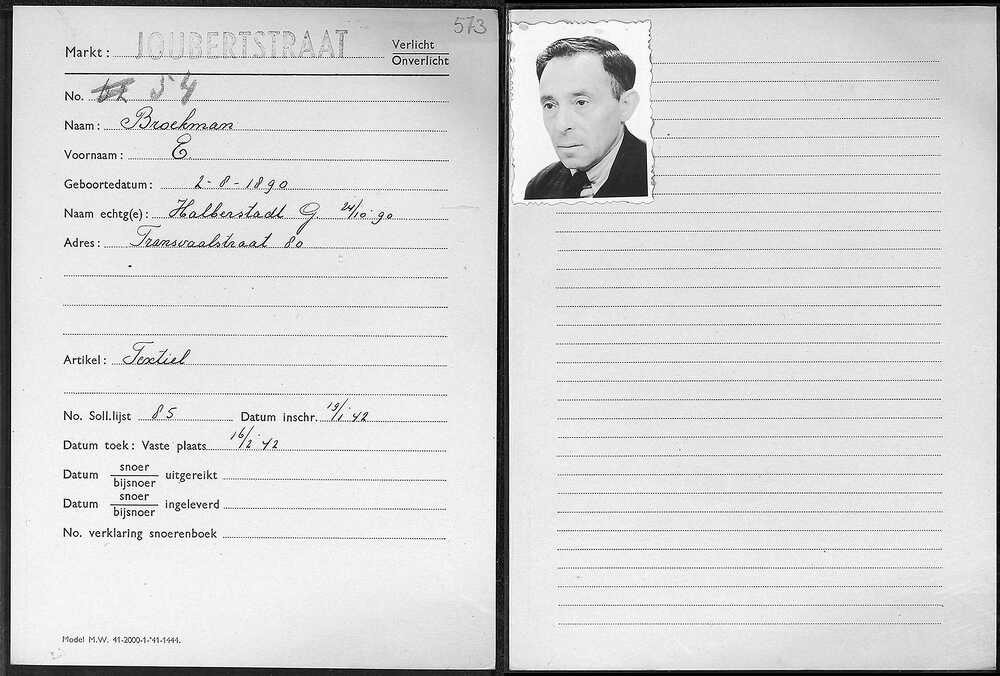 573
Markt: JOUBERTSTRAAT Verlicht
Onverlicht
No. 54
Naam: Broekman
Voornaam: E.
Geboortedatum: 2-8-1890
Naam echtg(e): Halberstadt G. 24/10 90
Adres: Transvaalstraat 80
Artikel: Textiel
No. Soll.lijst 85 Datum inschr. 19/1 42
Datum toek: Vaste plaats 16/2 '42
Datum snoer
bijsnoer uitgereikt
Datum snoer
bijsnoer ingeleverd
No. verklaring snoerenboek
Model M.W. 41-2000-1-'41-1444.